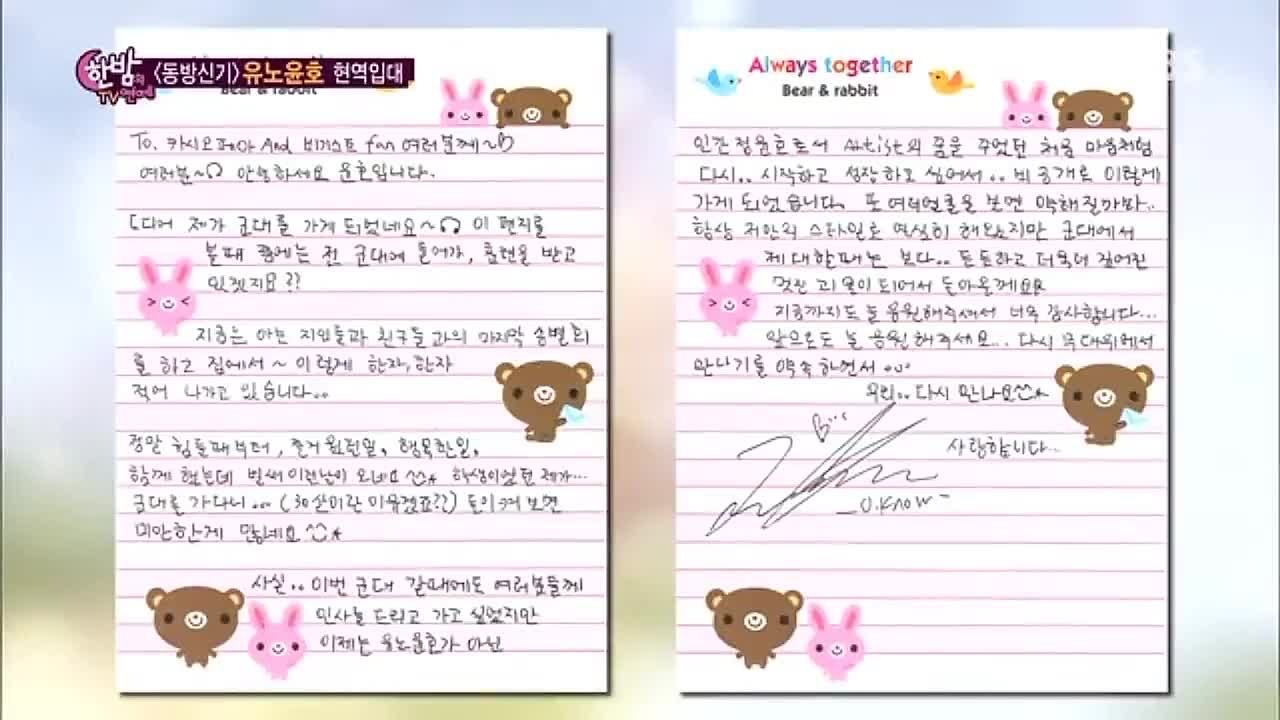 한밤의
TV연예
<동방신기> 유노윤호 현역입대
SBS
Bear & rabbit
To. 카시오페아 And 비기스트 fan 여러분께~
여러분~ 안녕하세요 윤호입니다.
드디어 제가 군대를 가게 되었네요~ 이 편지를
볼때 쯤에는 전 군대에 들어가, 훈련을 받고
있겠지요??
지금은 아는 지인들과 친구들과의 마지막 송별회
를 하고 집에서~ 이렇게 한자, 한자
적어 나가고 있습니다..
정말 힘들때부터, 즐거웠던일, 행복한일,
함께 했는데 벌써 이런날이 오네요^^* 학생이였던 제가...
군대를 가다니... (30살이란 이유겠죠??) 돌이켜 보면
미안한게 많네요^^*
사실.. 이번 군대 갈때에도 여러분들께
인사를 드리고 가고 싶었지만
이제는 유노윤호가 아닌
Always together
Bear & rabbit
인간 정윤호로서 Artist의 꿈을 꾸었던 처음 마음처럼
다시.. 시작하고 성장하고 싶어서.. 비공개로 이렇게
가게 되었습니다. 또 여러얼굴을 보면 약해질까봐..
항상 저만의 스타일로 열심히 해왔지만 군대에서
제대할때는 보다.. 든든하고 더욱더 짙어진
멋진 리더이 되어서 돌아올께요
지금까지도 늘 응원해주셔서 너무 감사합니다...
앞으로도 늘 응원해주세요.. 다시 무대위에서
만나기를 약속하면서...
우리.. 다시 만나요^^*
사랑합니다..
_U.Know-